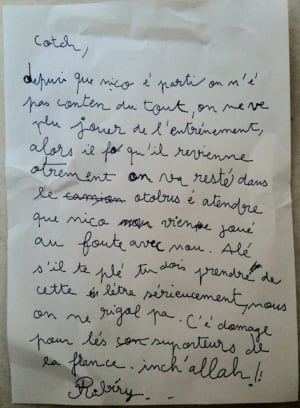 Cotch,
depuis que nico é parti on n'é
pas conten du tout, on ne ve
plu jouer de l'entrénement,
alors il fo qu'il revienne
otrement on va resté dans
le camion otobus é atendre
que nico vienne joué
au foute avec nou. Alé
s'il te plé tu dois prendre
cette létre sérieucement, nous
on ne rigol pa. C'é domage
pour lés suporteurs de
la france. inch'allah !!
Ribéry